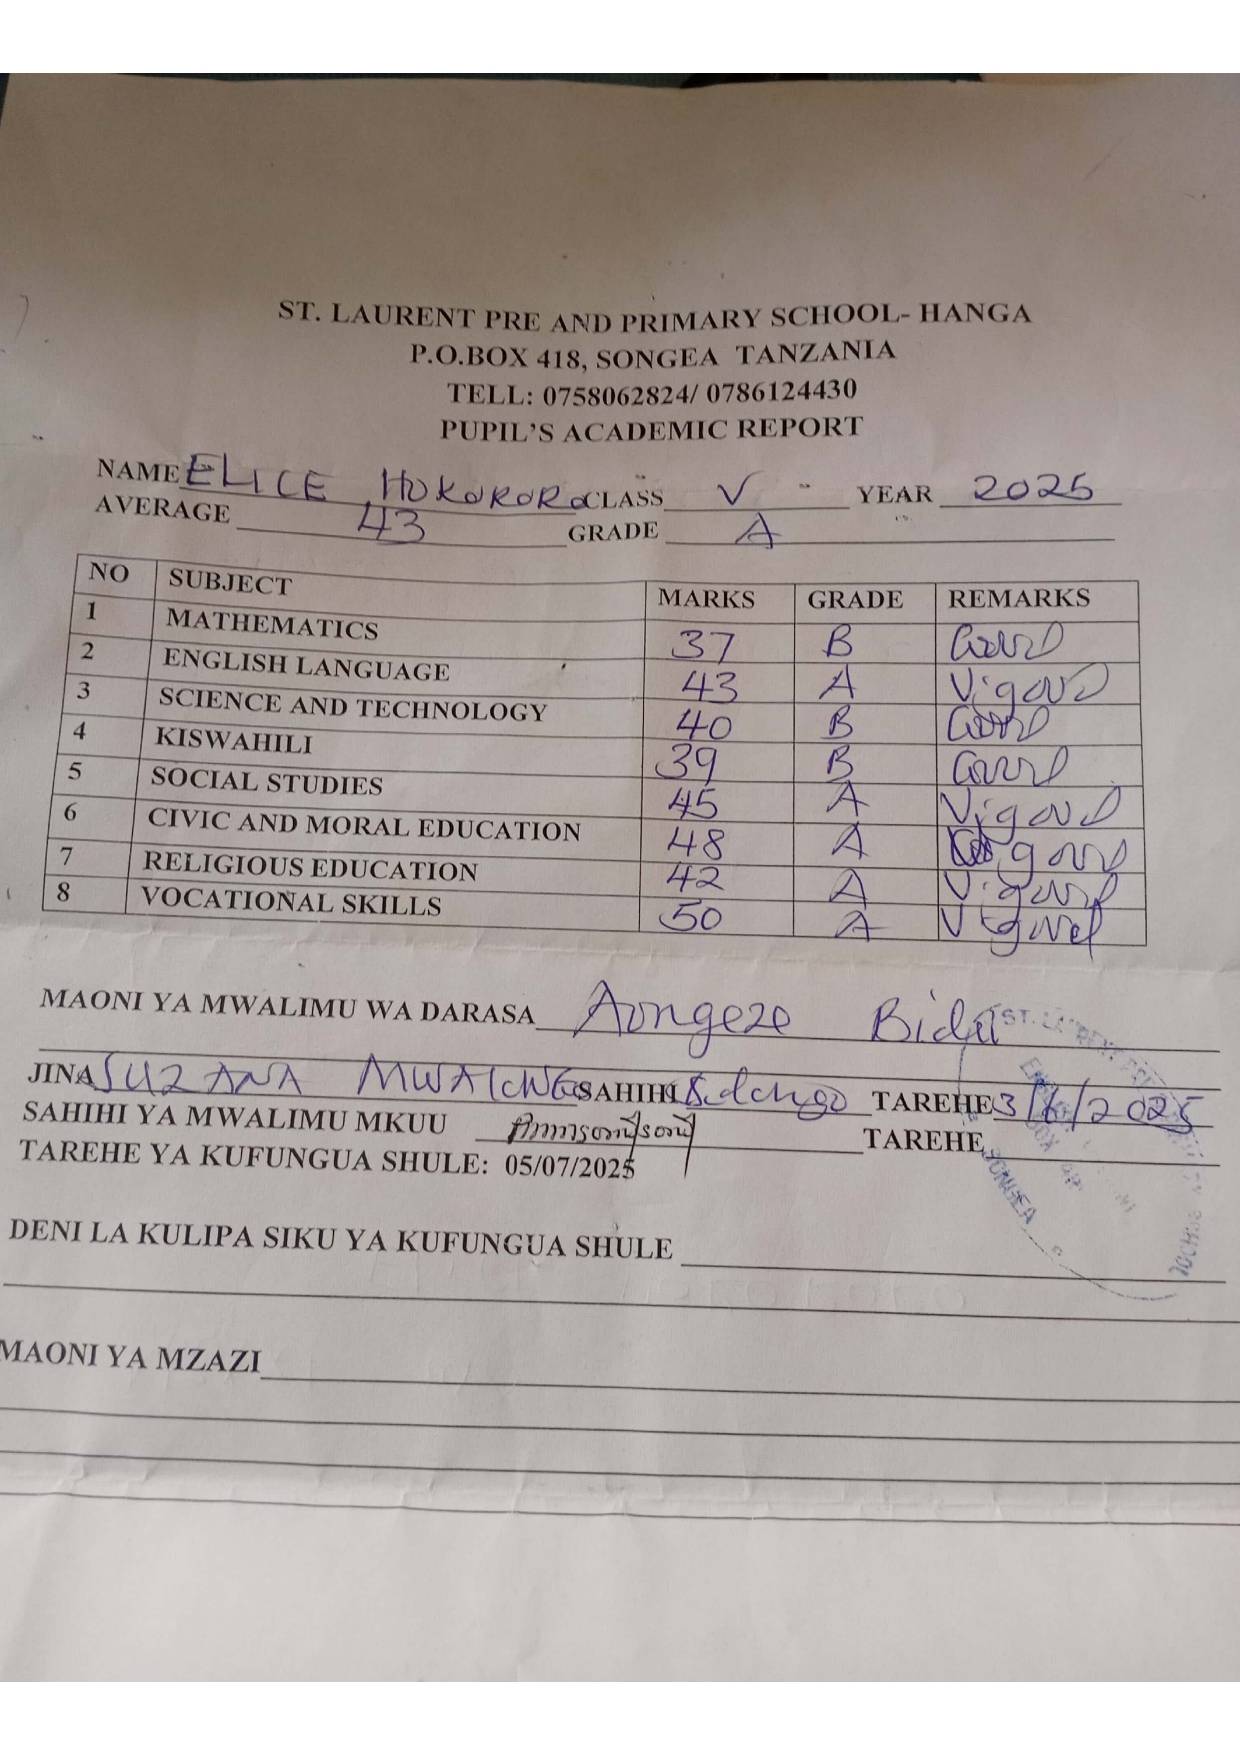 ST. LAURENT PRE AND PRIMARY SCHOOL- HANGA
P.O.BOX 418, SONGEA TANZANIA
TELL: 0758062824/ 0786124430
PUPIL'S ACADEMIC REPORT
NAME ELICE HOKORORO CLASS V YEAR 2025
AVERAGE 43 GRADE A
NO SUBJECT MARKS GRADE REMARKS
1 MATHEMATICS 37 B Good
2 ENGLISH LANGUAGE 43 A V.good
3 SCIENCE AND TECHNOLOGY 40 B Good
4 KISWAHILI 39 B Good
5 SOCIAL STUDIES 45 A V.good
6 CIVIC AND MORAL EDUCATION 48 A good
7 RELIGIOUS EDUCATION 42 A V.good
8 VOCATIONAL SKILLS 50 A V.good
MAONI YA MWALIMU WA DARASA Aongeze Bidii
JINA SUZANA SAHIHI TAREHE 3/6/2025
SAHIHI YA MWALIMU MKUU TAREHE
TAREHE YA KUFUNGUA SHULE: 05/07/2025
DENI LA KULIPA SIKU YA KUFUNGUA SHULE
MAONI YA MZAZI